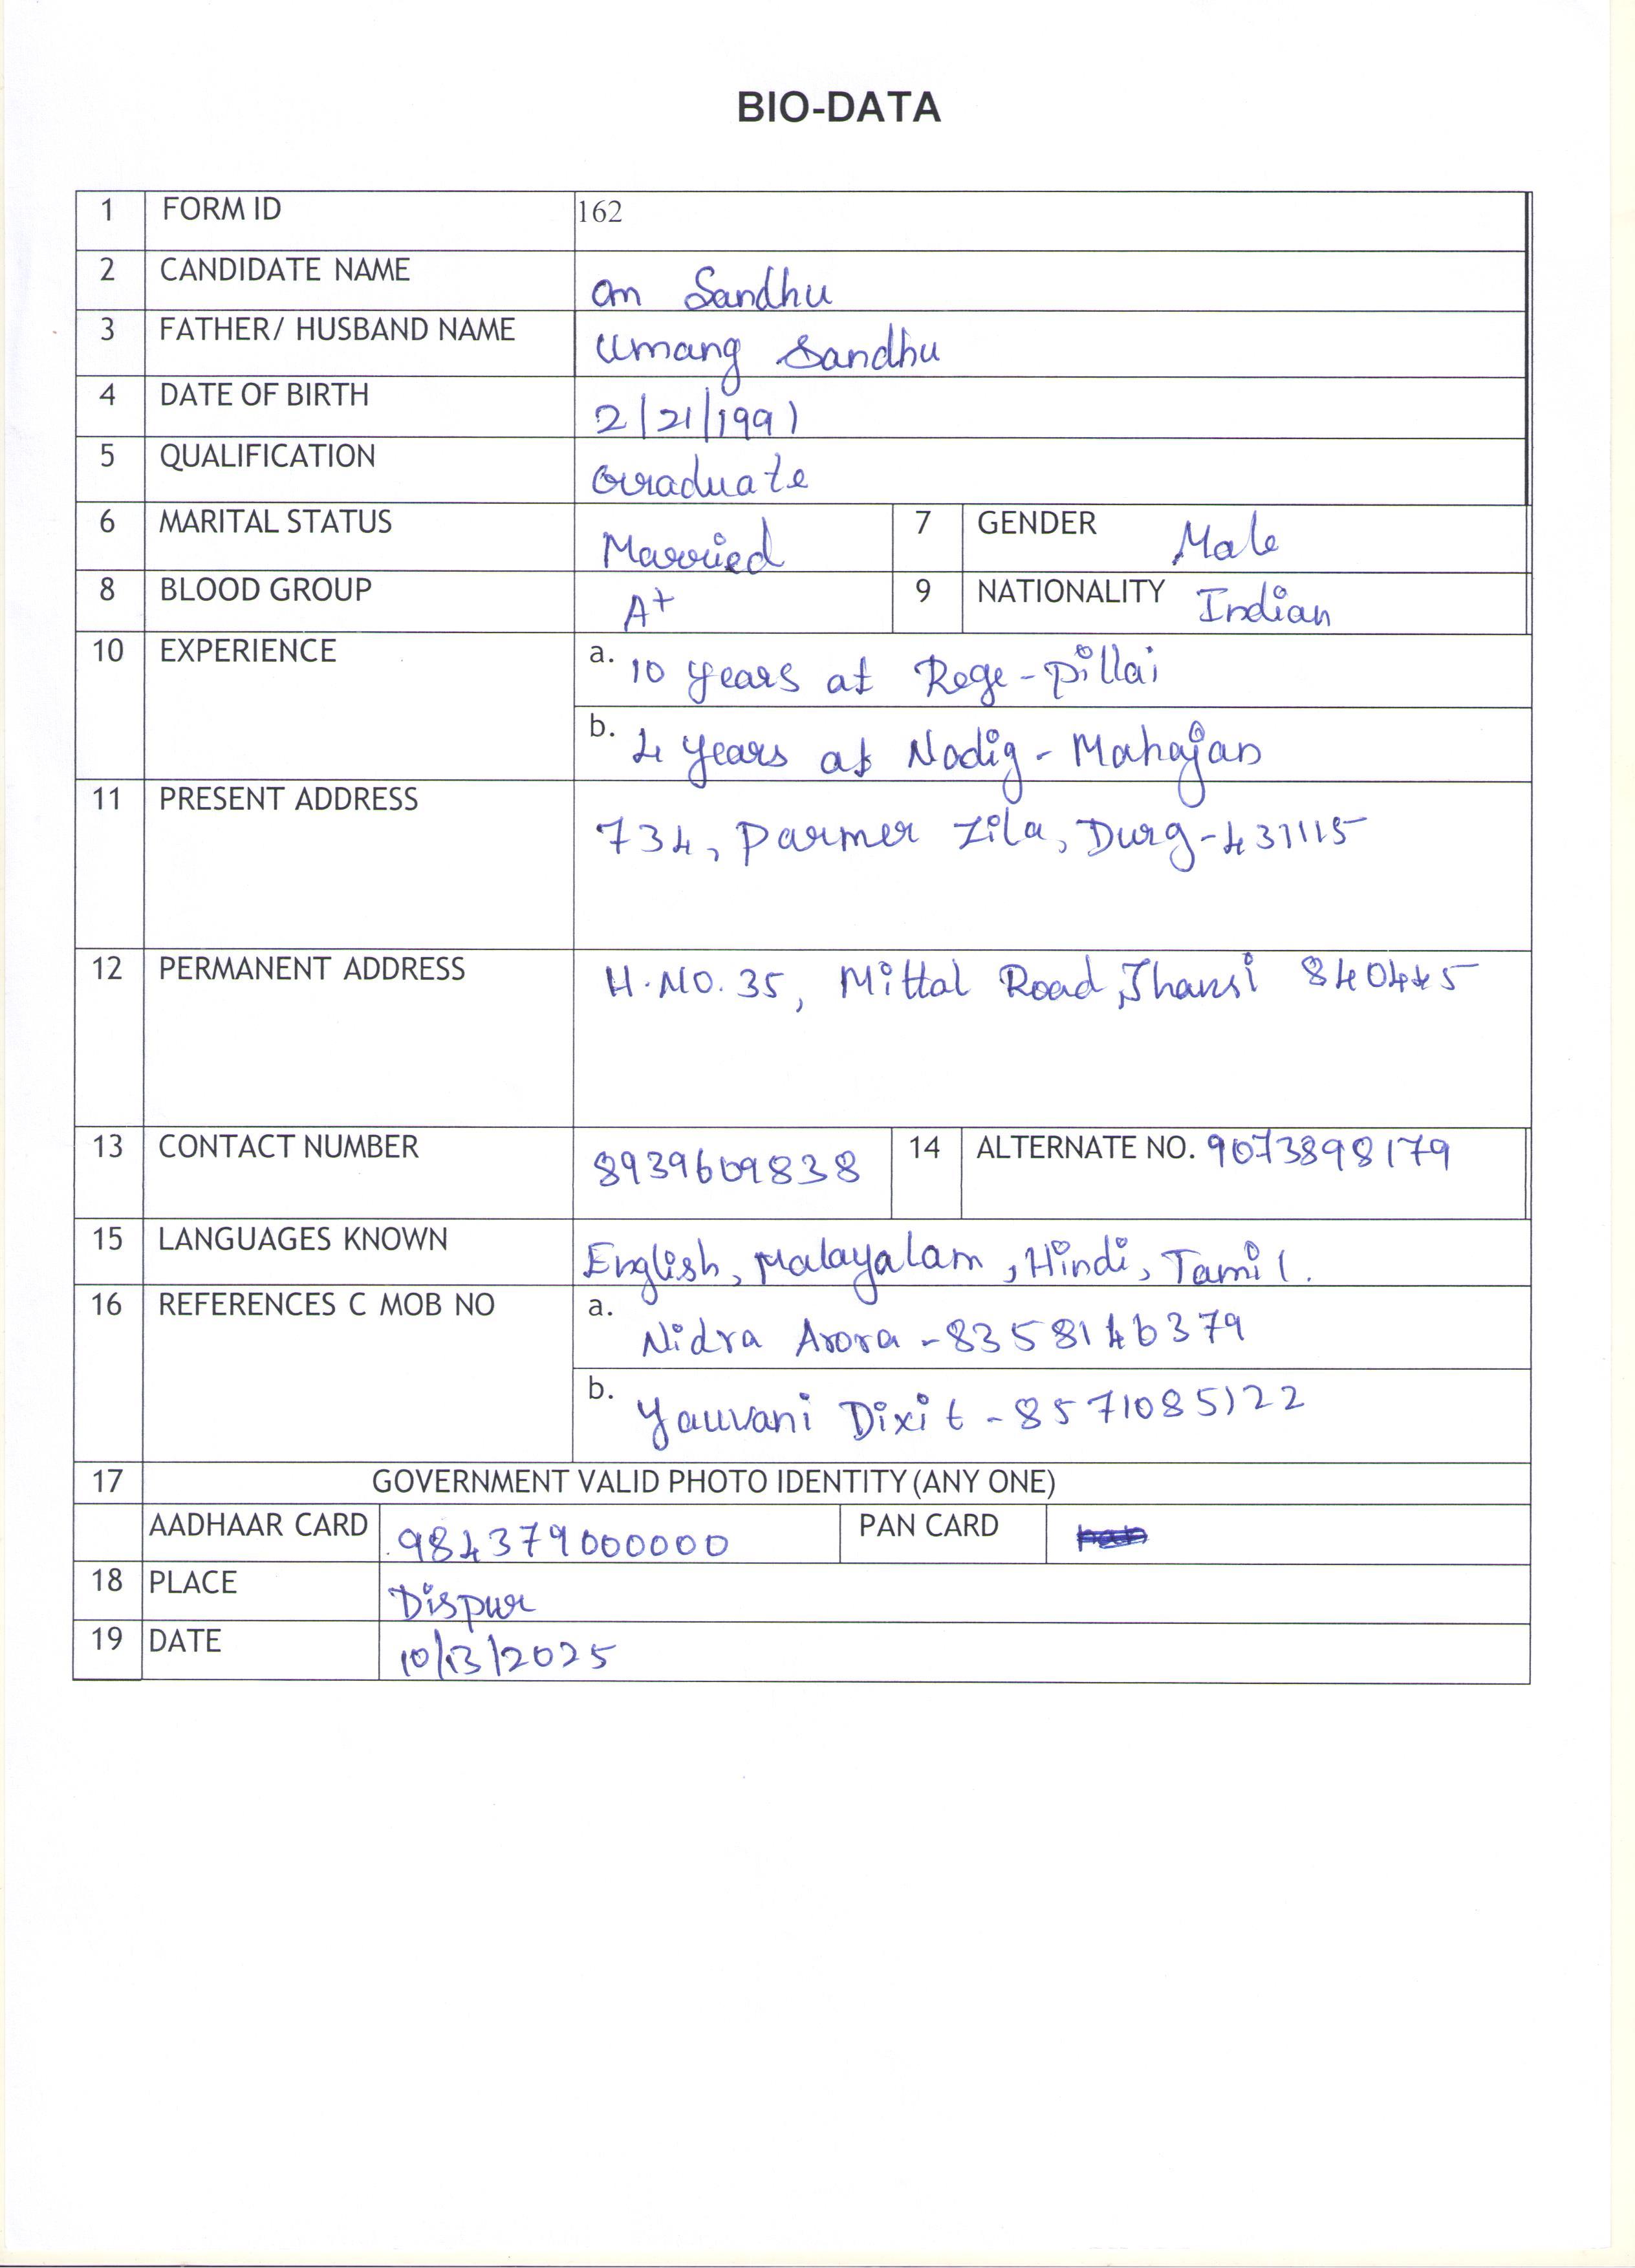 BIO-DATA
1 FORM ID 162
2 CANDIDATE NAME Om Sandhu
3 FATHER/ HUSBAND NAME Umang Sandhu
4 DATE OF BIRTH 2/21/1991
5 QUALIFICATION Graduate
6 MARITAL STATUS Married 7 GENDER Male
8 BLOOD GROUP A+ 9 NATIONALITY Indian
10 EXPERIENCE a. 10 years at Rege-Pillai
b. 4 years at Nadig-Mahajan
11 PRESENT ADDRESS 734, Parmer Zila, Durg-431115
12 PERMANENT ADDRESS H.NO.35, Mittal Road, Jhansi 840445
13 CONTACT NUMBER 8939609838 14 ALTERNATE NO. 9073898179
15 LANGUAGES KNOWN English, Malayalam, Hindi, Tamil.
16 REFERENCES C MOB NO a. Nidra Arora - 8358146379
b. Yauvani Dixit - 8571085122
17 GOVERNMENT VALID PHOTO IDENTITY (ANY ONE)
AADHAAR CARD 984379000000 PAN CARD
18 PLACE Dispur
19 DATE 10/13/2025